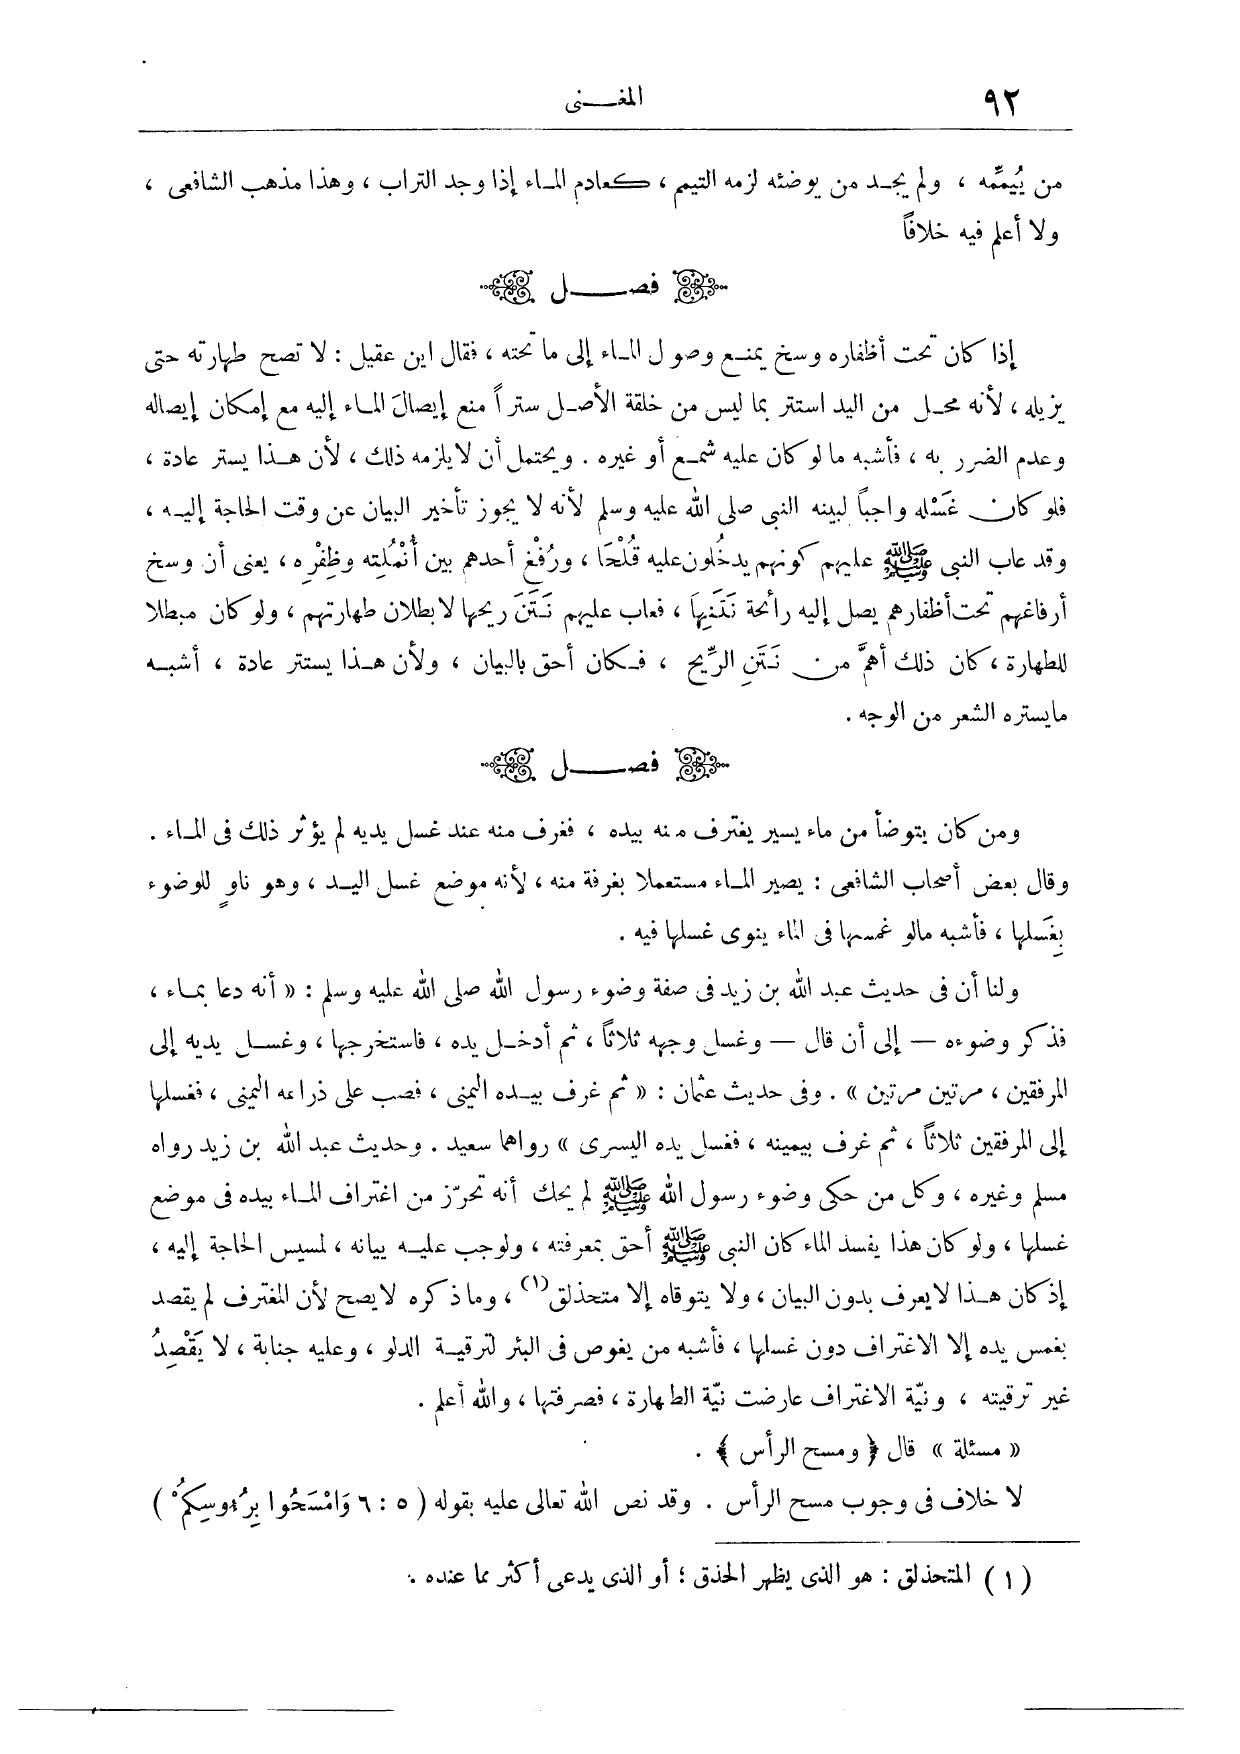 ٩٢
المغــنى
من يُيَمِّمه ، ولم يجـد من يوضئه لزمه التيمم ، كعادم المـاء إذا وجد التراب ، وهذا مذهب الشافعى ،
ولا أعلم فيه خلافاً
فصــل
إذا كان تحت أظفاره وسخ يمنـع وصول المـاء إلى ما تحته ، فقال ابن عقيل : لا تصح طهارته حتى
يزيله ، لأنه محـل من اليد استتر بما ليس من خلقة الأصـل ستراً منع إيصالَ المـاء إليه مع إمكان إيصاله
وعدم الضرر به ، فأشبه ما لو كان عليه شمـع أو غيره . ويحتمل أن لا يلزمه ذلك ، لأن هـذا يستر عادة ،
فلو كان غَسْله واجباً لبينه النبى صلى الله عليه وسلم لأنه لا يجوز تأخير البيان عن وقت الحاجة إليـه ،
وقد عاب النبى ﷺ عليهم كونهم يدخُلون عليه قُلْحَا ، ورُفْغ أحدهم بين أُنْمُلِته وظِفْرِه ، يعنى أن وسخ
أرفاغهم تحت أظفارهم يصل إليه رائحة نَتَنِهاَ ، فعاب عليهم نَـتَنَ ريحها لا بطلان طهارتهم ، ولو كان مبطلا
للطهارة ، كان ذلك أهمَّ من نَـتَنِ الرِّيح ، فـكان أحق بالبيان ، ولأن هـذا يستتر عادة ، أشبـه
مايستره الشعر من الوجه .
فصــل
ومن كان يتوضأ من ماء يسير يغترف منه بيده ، فغرف منه عند غسل يديه لم يؤثر ذلك فى المـاء .
وقال بعض أصحاب الشافعى : يصير المـاء مستعملا بغرفة منه ، لأنه موضع غسل اليـد ، وهو ناوٍ للوضوء
بِغَسلها ، فأشبه مالو غمسها فى الماء ينوى غسلها فيه .
ولنا أن فى حديث عبد الله بن زيد فى صفة وضوء رسول الله صلى الله عليه وسلم : « أنه دعا بمـاء ،
فذكر وضوءه — إلى أن قال — وغسل وجهه ثلاثاً ، ثم أدخـل يده ، فاستخرجها ، وغسـل يديه إلى
المرفقين ، مرتين مرتين » . وفى حديث عثمان : « ثم غرف بيـده اليمنى ، فصب على ذراعه اليمنى ، فغسلها
إلى المرفقين ثلاثاً ، ثم غرف بيمينه ، فغسل يده اليسرى » رواهما سعيد . وحديث عبد الله بن زيد رواه
مسلم وغيره ، وكل من حكى وضوء رسول الله ﷺ لم يحك أنه تحرّز من اغتراف المـاء بيده فى موضع
غسلها ، ولو كان هذا يفسد الماء كان النبى ﷺ أحق بمعرفته ، ولوجب عليـه بيانه ، لمسيس الحاجة إليه ،
إذ كان هـذا لايعرف بدون البيان ، ولا يتوقاه إلا متحذلق(١) ، وما ذكره لايصح لأن المغترف لم يقصد
بغمس يده إلا الاغتراف دون غسلها ، فأشبه من يغوص فى البئر لترقيـة الدلو ، وعليه جنابة ، لا يَقْصِدُ
غير ترقيته ، ونيّة الاغتراف عارضت نيّة الطهارة ، فصرفتها ، والله أعلم .
« مسئلة » قال ﴿ ومسح الرأس ﴾ .
لا خلاف فى وجوب مسح الرأس . وقد نص الله تعالى عليه بقوله ( ٥ : ٦ وَامْسَحُوا بِرُءوسِكمُ )
( ١ ) المتحذلق : هو الذى يظهر الحذق ؛ أو الذى يدعى أكثر مما عنده .